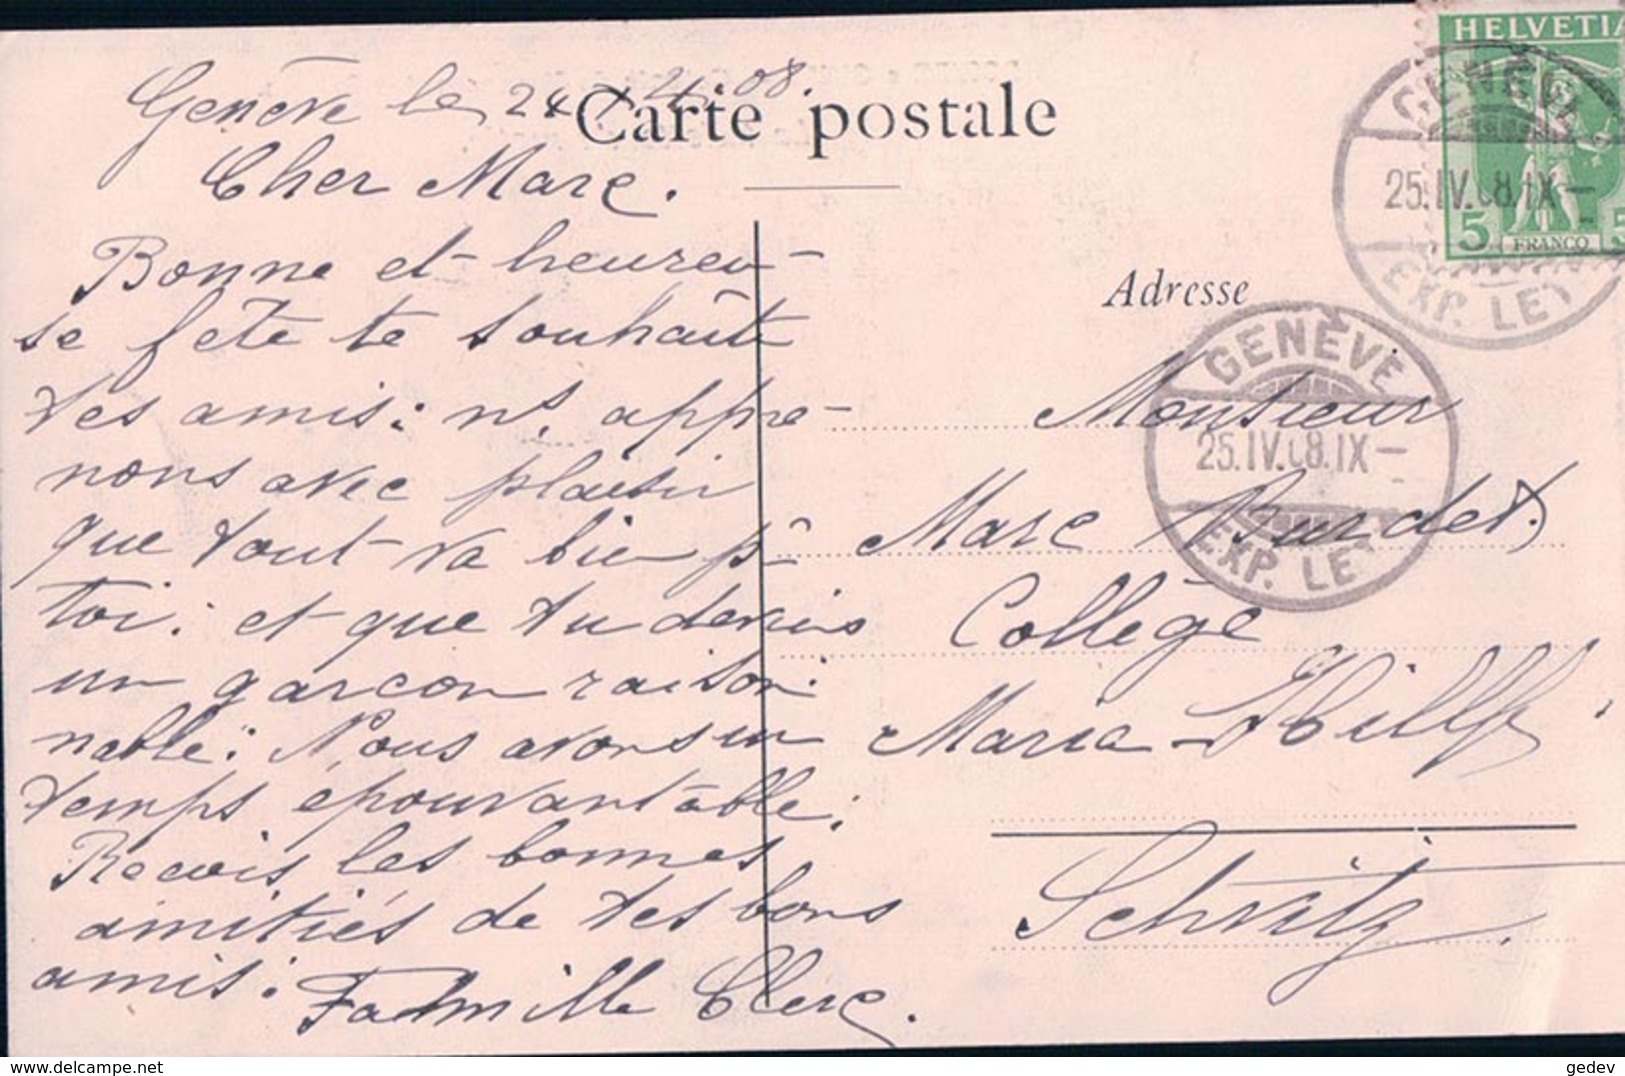 HELVETIA
GENÈVE
25.IV.08.IX—
EXP. LET
5 FRANCO 5
Carte postale
Genève le 24/4 08.
Cher Marc.
Bonne et heureu-
se fête te souhaite
tes amis: ns. appre-
nons avec plaisir
que tout va bien pr
toi: et que tu deviens
un garçon raison-
nable: Nous avons un
temps épouvantable:
Recois les bonnes
amitiés de tes bons
amis: Famille Clerc.
Adresse
GENÈVE
25.IV.08.IX—
EXP. LET
Monsieur
Marc Burdet
Collège
Maria-Hilff
Schvitz
gedev